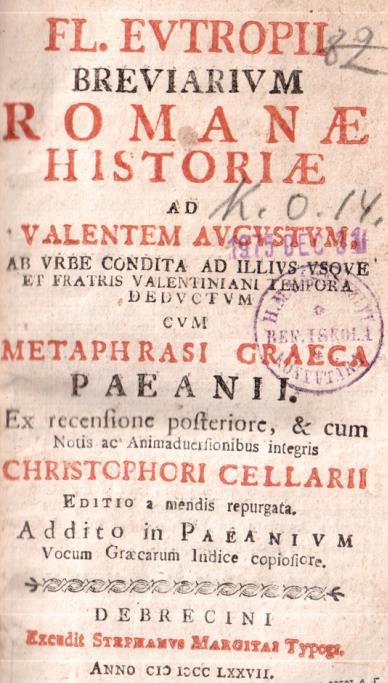 FL. EVTROPII
82
BREVIARIVM
ROMANÆ
HISTORIÆ
AD
K. O. 14.
VALENTEM AVGVSTVM,
1915 DEC 31
AB VRBE CONDITA AD ILLIVS VSQVE
ET FRATRIS VALENTINIANI TEMPORA
DEDVCTVM
CVM
REF. ISKOLA
METAPHRASI GRAECA
PAEANII.
Ex recenſione poſteriore, & cum
Notis ac Animaduerſionibus integris
CHRISTOPHORI CELLARII
EDITIO a mendis repurgata.
Addito in PAEANIVM
Vocum Græcarum Indice copioſiore.
DEBRECINI
Excudit STEPHANVS MARGITAI Typogr.
ANNO CIↃ IↃCC LXXVII.